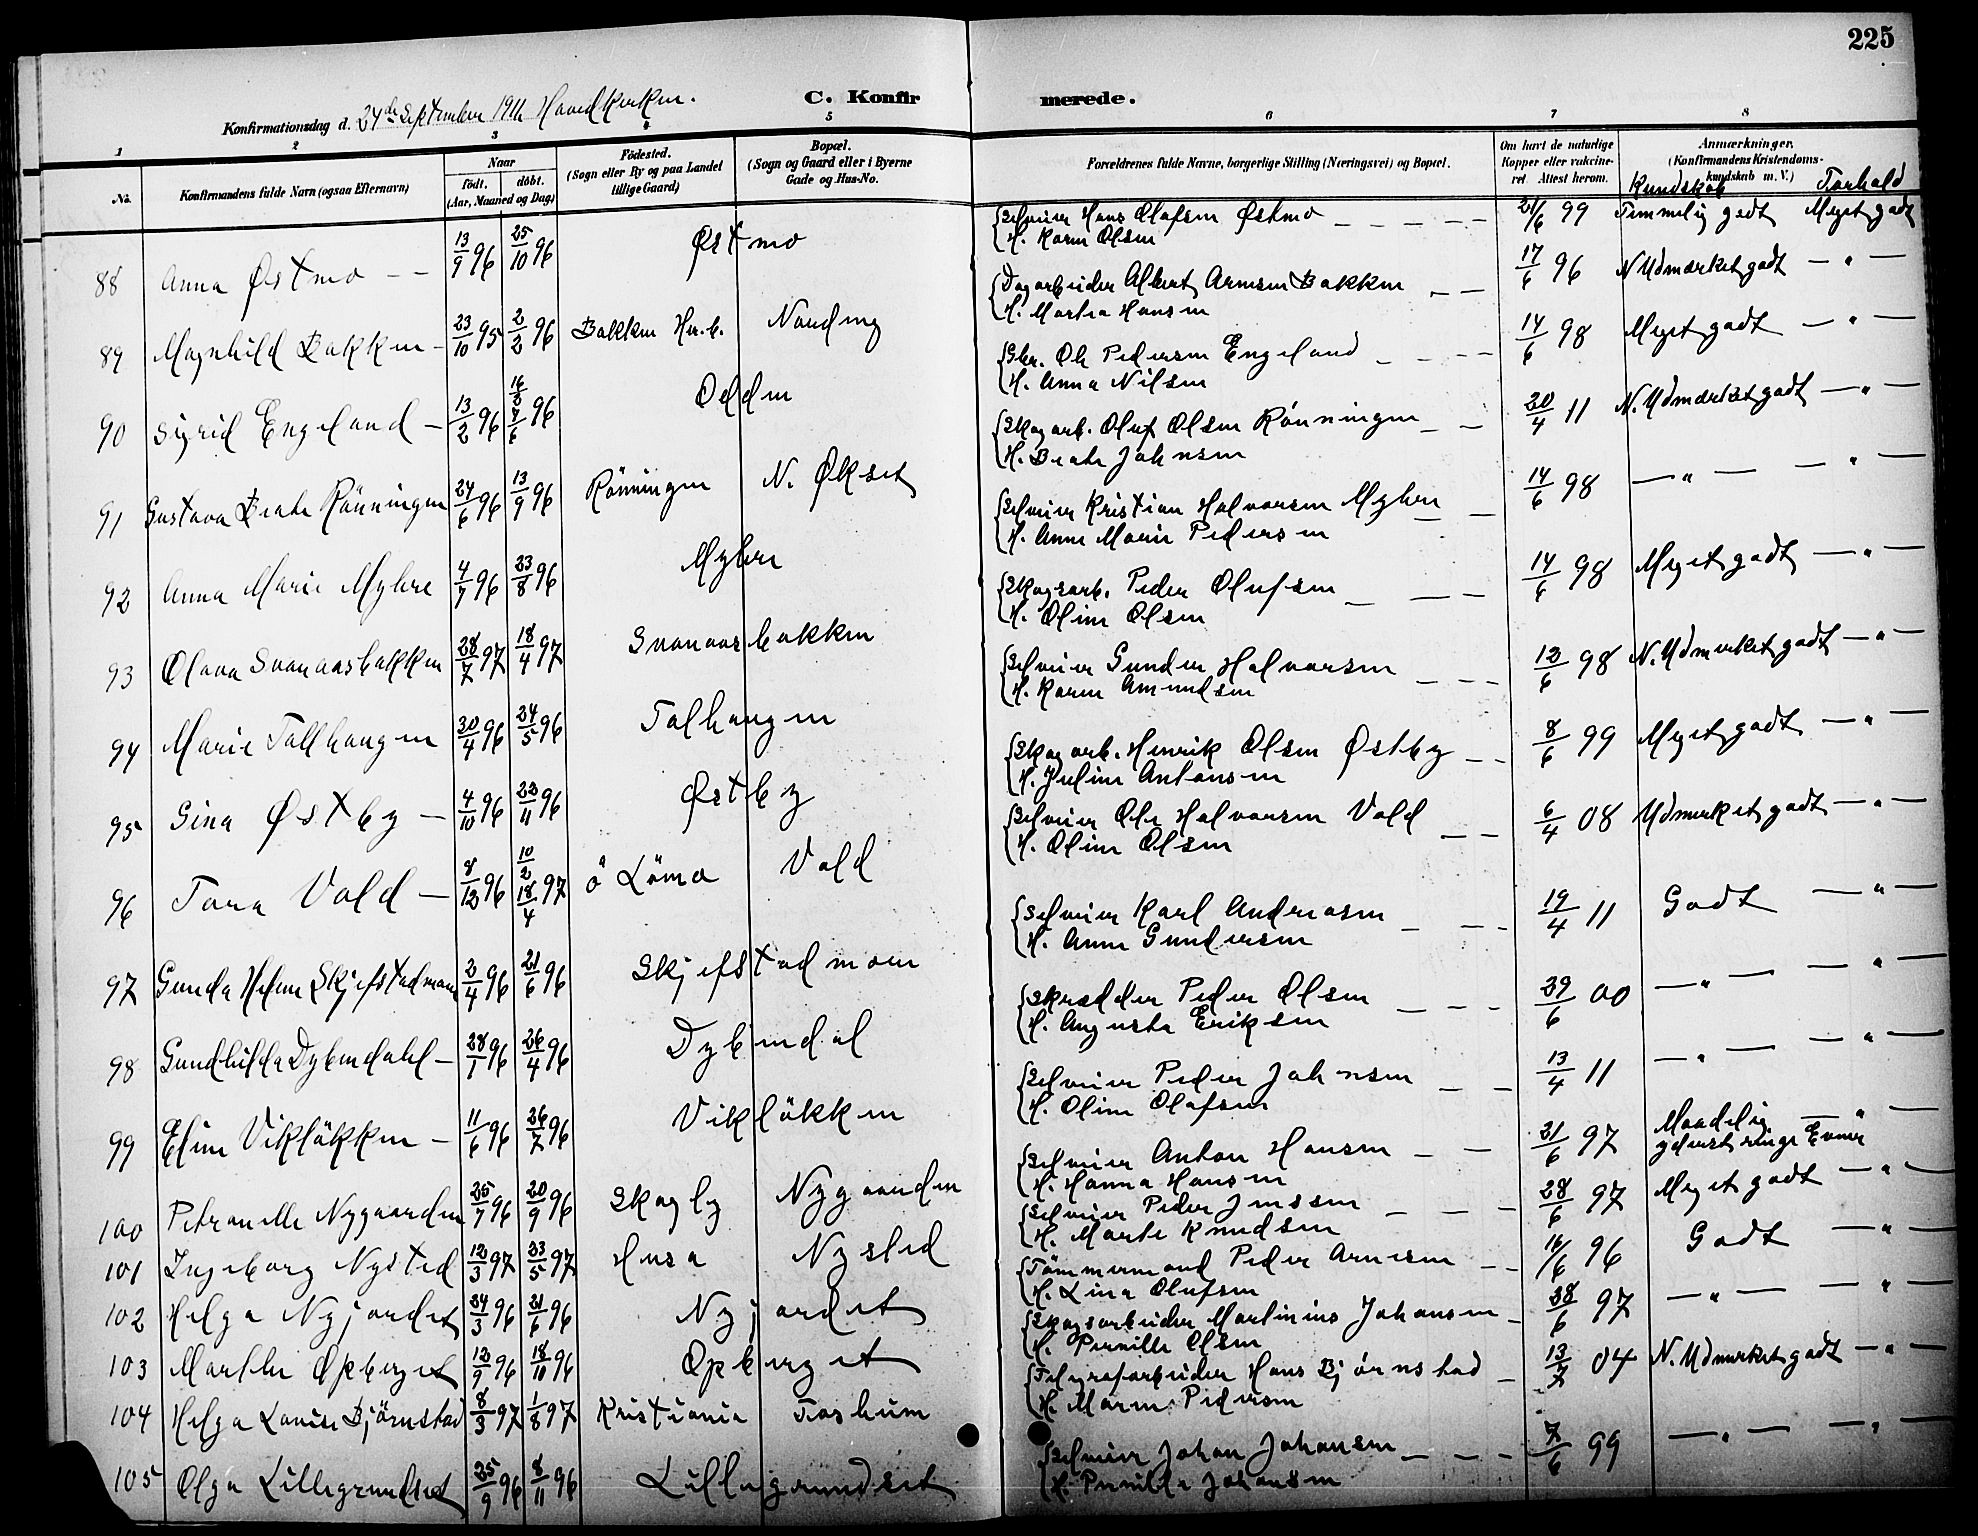 225
Konfirmationsdag d. 24de September 1911 Hovedkirken.
C. Konfirmerede.
1 2 3 4 5 6 7 8
No. Konfirmandens fulde Navn (ogsaa Efternavn) Naar født, døbt. (Aar, Maaned og Dag) Fødested. (Sogn eller By og paa Landet tillige Gaard) Bopæl. (Sogn og Gaard eller i Byerne Gade og Hus-No. Forældrenes fulde Navne, borgerlige Stilling (Næringsvei) og Bopæl. Om havt de naturlige Kopper eller vakcineret. Attest herom. Anmærkninger. (Konfirmandens Kristendomskundskab m. V.)
Kundskab Forhold
88 Anna Østmo 13/9 96 25/10 96 Østmo Selveier Hans Olafsen Østmo 21/6 99 Temmelig godt Meget godt
H. Karen Olsen
89 Magnhild Bakken 23/10 95 2/2 96 Bakken Her.b. Nording Dagarbeider Albert Arnesen Bakken 17/6 96 N. Udmærket godt — " —
H. Martea Hansen
90 Sigrid Engeland 13/2 96 7/6 96 Odden Gbr. Ole Pedersen Engeland 14/6 98 Meget godt — " —
H. Anna Nilsen
91 Gustava Beate Rönningen 24/6 96 13/9 96 Rönningen N. Økset Skogarb. Oluf Olsen Rönningen 20/4 11 N. Udmærket godt — " —
H. Beate Johnsen
92 Anna Marie Myhre 4/7 96 23/8 96 Myhre Selveier Kristian Halvorsen Myhre 14/6 98 — " — — " —
H. Anne Marie Pedersen
93 Olava Svanaasbakken 28/7 97 18/4 97 Svanaasbakken Skogsarb. Peder Olufsen 14/6 98 Meget godt — " —
H. Oline Olsen
94 Marie Tallhaugen 30/4 96 24/5 96 Talhaugen Selveier Gunder Halvorsen 12/6 98 N. Udmerket godt — " —
H. Karen Amundsen
95 Gina Østby 4/10 96 22/11 96 Østby Skogarb. Henrik Olsen Østby 8/6 99 Meget godt — " —
H. Juline Antonsen
96 Tora Vold 8/12 96 10/2 18/4 97 ö Löma Vold Selveier Ole Halvorsen Vold 6/4 08 Udmerket godt — " —
H. Oline Olsen
97 Gunda Helene Skjefstadmoen 2/4 96 21/6 96 Skjefstadmoen Selveier Karl Andreasen 19/4 11 Godt — " —
H. Anne Gundersen
98 Gundhilda Dybendahl 28/1 96 26/4 96 Dybendal Skrædder Peder Olsen 29/6 00 — " — — " —
H. Augusta Eriksen
99 Eline Viklökken 11/6 96 26/7 96 Viklökken Selveier Peder Johnsen 13/4 11 — " — — " —
H. Oline Olafsen
100 Petronelle Nygaarden 25/7 96 20/9 96 Skogly Nygaarden Selveier Anton Hansen 21/6 97 Maadelig — " —
H. Hanna Hansen yderst ringe Evner
101 Ingeborg Nysted 12/3 97 23/5 97 Husa Nysted Selveier Peder Jensen 28/6 97 Meget godt — " —
H. Marte Knudsen
102 Helga Nyjordet 24/3 96 21/6 96 Nyjordet Tömmermand Peder Arnesen 16/6 96 Godt — " —
H. Lina Olufsen
103 Marthe Opberget 12/9 96 18/10 96 Opberget Skogsarbeider Martinius Johansen 28/6 97 — " — — " —
H. Pernille Olsen
104 Helga Louise Björnstad 8/3 97 1/8 97 Kristiania Forshun Telegrafarbeider Hans Bjørnstad 13/7 04 N. Udmerket godt — " —
H. Maren Pedersen
105 Olga Lillegrundset 25/9 96 8/11 96 Lillegrundset Selveier Johan Johansen 7/6 99 — " — — " —
H. Pernille Johansen